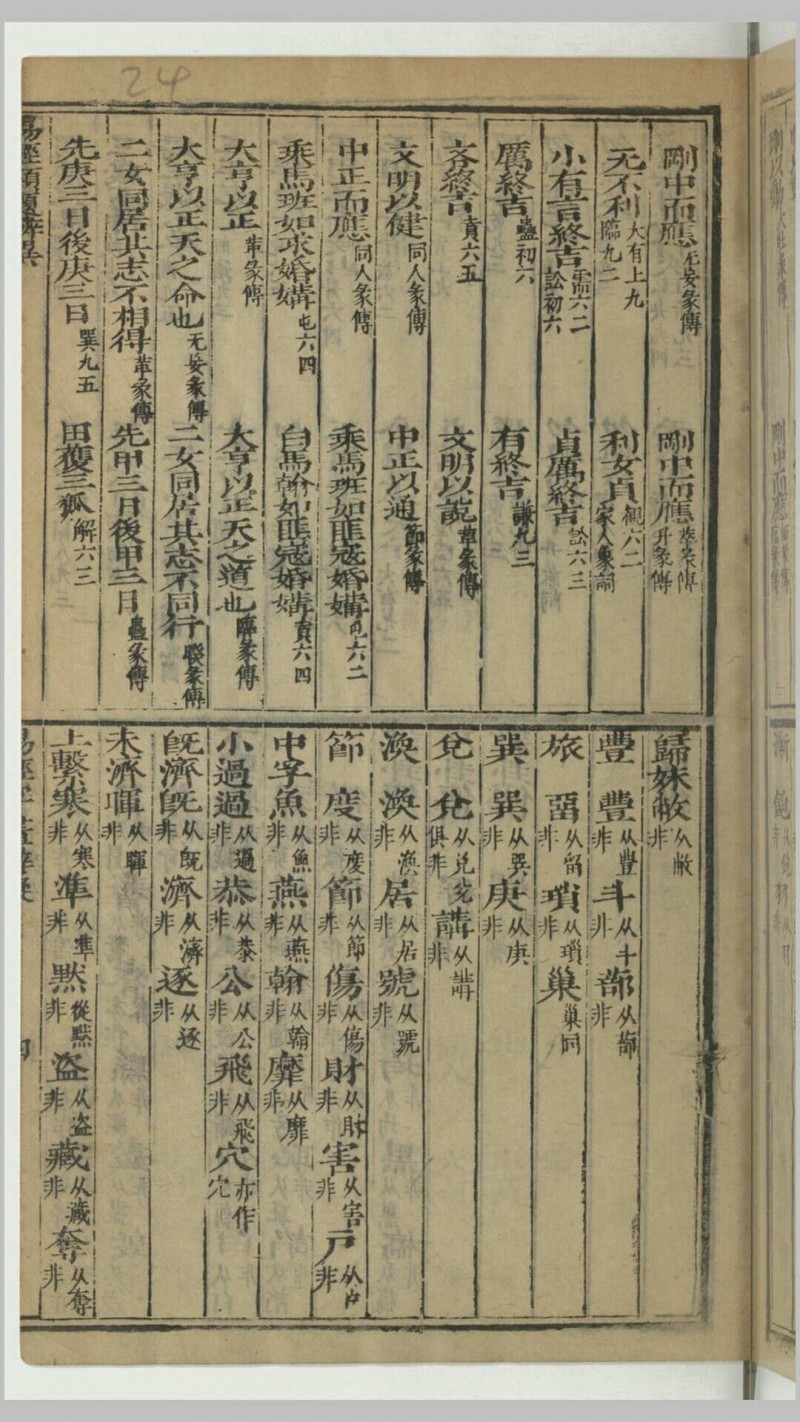 24
剛中而應无妄彖傳 剛中而應萃彖傳升彖傳
无不利大有上九臨九二 利女貞觀六二家人彖詞
小有言終吉需六二訟初六 貞厲終吉訟六三
厲終吉蠱初六 有終吉謙九三
吝終吉賁六五 文明以說革彖傳
文明以健同人彖傳 中正以通節彖傳
中正而應同人彖傳 乘馬班如匪寇婚媾屯六二
乘馬班如求婚媾屯六四 白馬翰如匪寇婚媾賁六四
大亨以正革彖傳 大亨以正天之道也臨彖傳
大亨以正天之命也无妄彖傳 二女同居其志不同行睽彖傳
二女同居其志不相得革彖傳 先甲三日後甲三日蠱彖傳
先庚三日後庚三日巽九五 田獲三狐解六三
歸妹敝从敝非
豐 豐从豐非 斗从斗非 蔀从蔀非
旅 畱从留非 瑣从瑣非 巢巢同
巽 巽从巽非 庚从庚非
兌 兌从兑兊俱非 講从講非
渙 渙从渙非 居从居非 號从號非
節 度从度非 節从節非 傷从傷非 財从財非 害从害非 戶从户非
中孚魚从魚非 燕从燕非 翰从翰非 靡从靡非
小過過从過非 恭从恭非 公从公非 飛从飛非 穴亦作穴
旣濟旣从旣非 濟从濟非 逐从逐非
未濟暉从暉非
上繫寒从寒非 準从準非 默從默非 盜从盗非 藏从藏非 奪从奪非